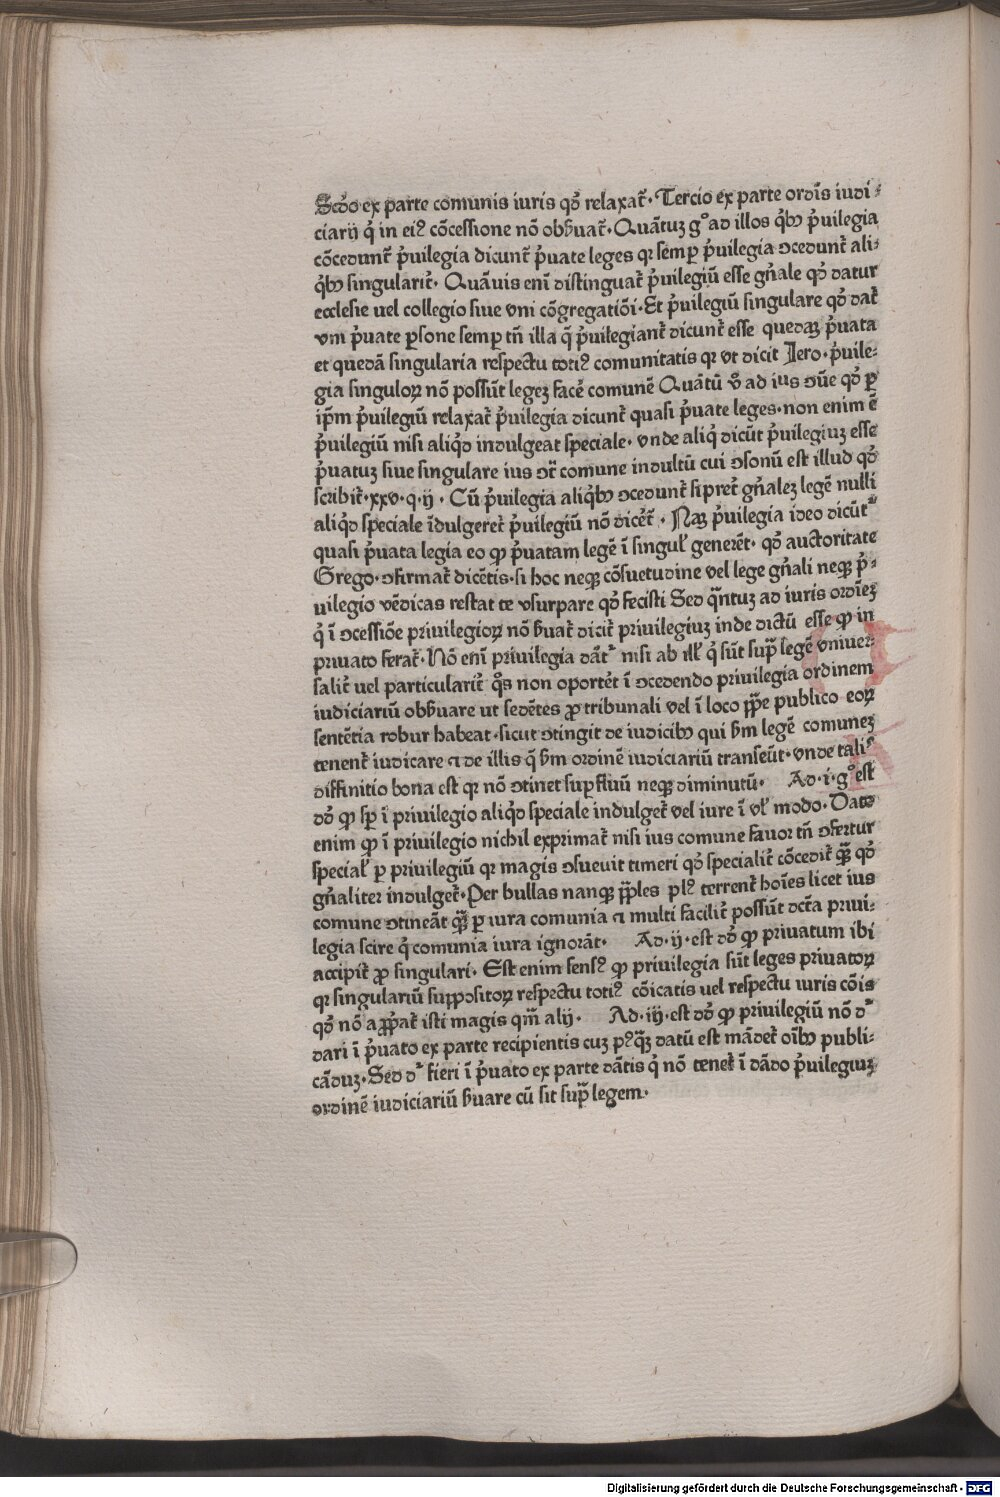 Scd́o ex parte comunis iuris qd́ relaxat̃. Tercio ex parte ordīs iudi⸗
ciarij q́ in ei⁹ cōcessione nō obẜuat̃. Quātuz g° ad illos qb́ꝫ ṕuilegia
cōcedunt̃ ṕuilegia dicunt̃ ṕuate leges qꝛ semꝑ ṕuilegia ↄcedunt̃ ali⸗
qb́ꝫ singularit̃. Quāuis eni distinguat̃ ṕuilegiū esse gn̄ale qd́ datur
ecclesie uel collegio siue vni cōgregatiōi. Et ṕuilegiū singulare qd́ dat̃
vni ṕuate ꝑsone semꝑ tn̄ illa q̄ ṕuilegiant̃ dicunt̃ esse quedaꝫ ṕuata
et quedā singularia respectu toti⁹ comunitatis qꝛ vt dicit Jero. ṕuile⸗
gia singuloꝝ nō possūt legeꝫ facé comunē Quātū v̊ ad ius ↄūe qd́ ꝑ
ip̄m ṕuilegiū relaxat̃ ṕuilegia dicunt̃ quasi ṕuate leges. non enim ē
ṕuilegiū nisi aliq́d indulgeat speciale. vnde aliq́ dicūt ṕuilegiuꝫ esse
ṕuatuꝫ siue singulare ius ↄt̃ comune indultū cui ↄsonū est illud qd́
scribit̃. xxv. q. ij. Cū ṕuilegia aliqb́ꝫ ↄcedunt̃ si pret̃ gn̄aleꝫ legē nulli
aliq́d speciale īdulgeret̃ ṕuilegiū nō dicet̃. Naꝫ ṕuilegia ideo dicūt᷑
quasi ṕuata legia eo ꝙ ṕuatam legē ī singul̃ generēt. qd́ auctoritate
Grego. ↄfirmat̃ dicētis. si hoc neqꝫ cōsuetudine vel lege gn̄ali neqꝫ ṕ⸗
uilegio vēdicas restat te vsurpare qd́ fecisti Sed q̄ntuꝫ ad iuris ordīeꝫ
q́ ī ↄcessiōe privilegioꝝ nō ẜuat̃ dicit̃ privilegiuꝫ inde dictū esse ꝙ in
privato ferat̃. Nō eni privilegia dāt᷑ nisi ab ill̃ q́ sūt supᷓ legē vniver⸗
salit̃ uel particularit̃ q̊s non oportet́ ī ↄcedendo privilegia ordinem
iudiciariū obẜuare ut sedētes ꝓ tribunali vel ī loco ꝓp̄e publico eoꝝ
sentētia robur habeat. sicut ↄtingit de iudicibꝫ qui ẜm legē comuneꝫ
tenent̃ iudicare ⁊ de illis q̄ ẜm ordinē iudiciariū transeūt. vnde tali⁹
diffinitio bona est qꝛ nō ↄtinet suꝑfluū neqꝫ diminutū. Ad. i. g° est
dd́ ꝙ sꝑ ī privilegio aliq́d speciale indulget̃ vel iure ī vl̃ modo. Dato
enim ꝙ ī privilegio nichil exprimat̃ nisi ius comune favor tn̄ ↄfertur
special̃ ꝑ privilegiū qꝛ magis ↄsuevit timeri qd́ specialit̃ cōcedit̃ qᷓꝫ qd́
gn̄aliter indulget̃. Per bullas nanqꝫ pp̄les pl⁹ terrent̃ hoīes licet ius
comune ↄtineāt qᷓꝫ ꝑ iura comunia ⁊ multi facilit̃ possūt dc̄ta privi⸗
legia scire q́ comunia iura ignorāt. Ad. ij. est dd́ ꝙ privatum ibi
accipit̃ ꝓ singulari. Est enim sens⁹ ꝙ privilegia sūt leges privatoꝝ
qꝛ singulariū suppositoꝝ respectu toti⁹ cōicatis uel respectu iuris cōis
qd́ nō aꝓp̄at̃ isti magis qm̄ alij. Ad. iij. est dd́ ꝙ privilegiū nō d᷑
dari ī ṕuato ex parte recipientis cuꝫ p⁹qᷓꝫ datū est mādet̃ oībꝫ publi⸗
cāduꝫ. Sed d᷑ fieri ī ṕuato ex parte dātis q́ nō tenet̃ ī dādo ṕuilegiuꝫ
ordinē iudiciariū ẜuare cū sit supᷓ legem.
Digitalisierung gefördert durch die Deutsche Forschungsgemeinschaft - DFG